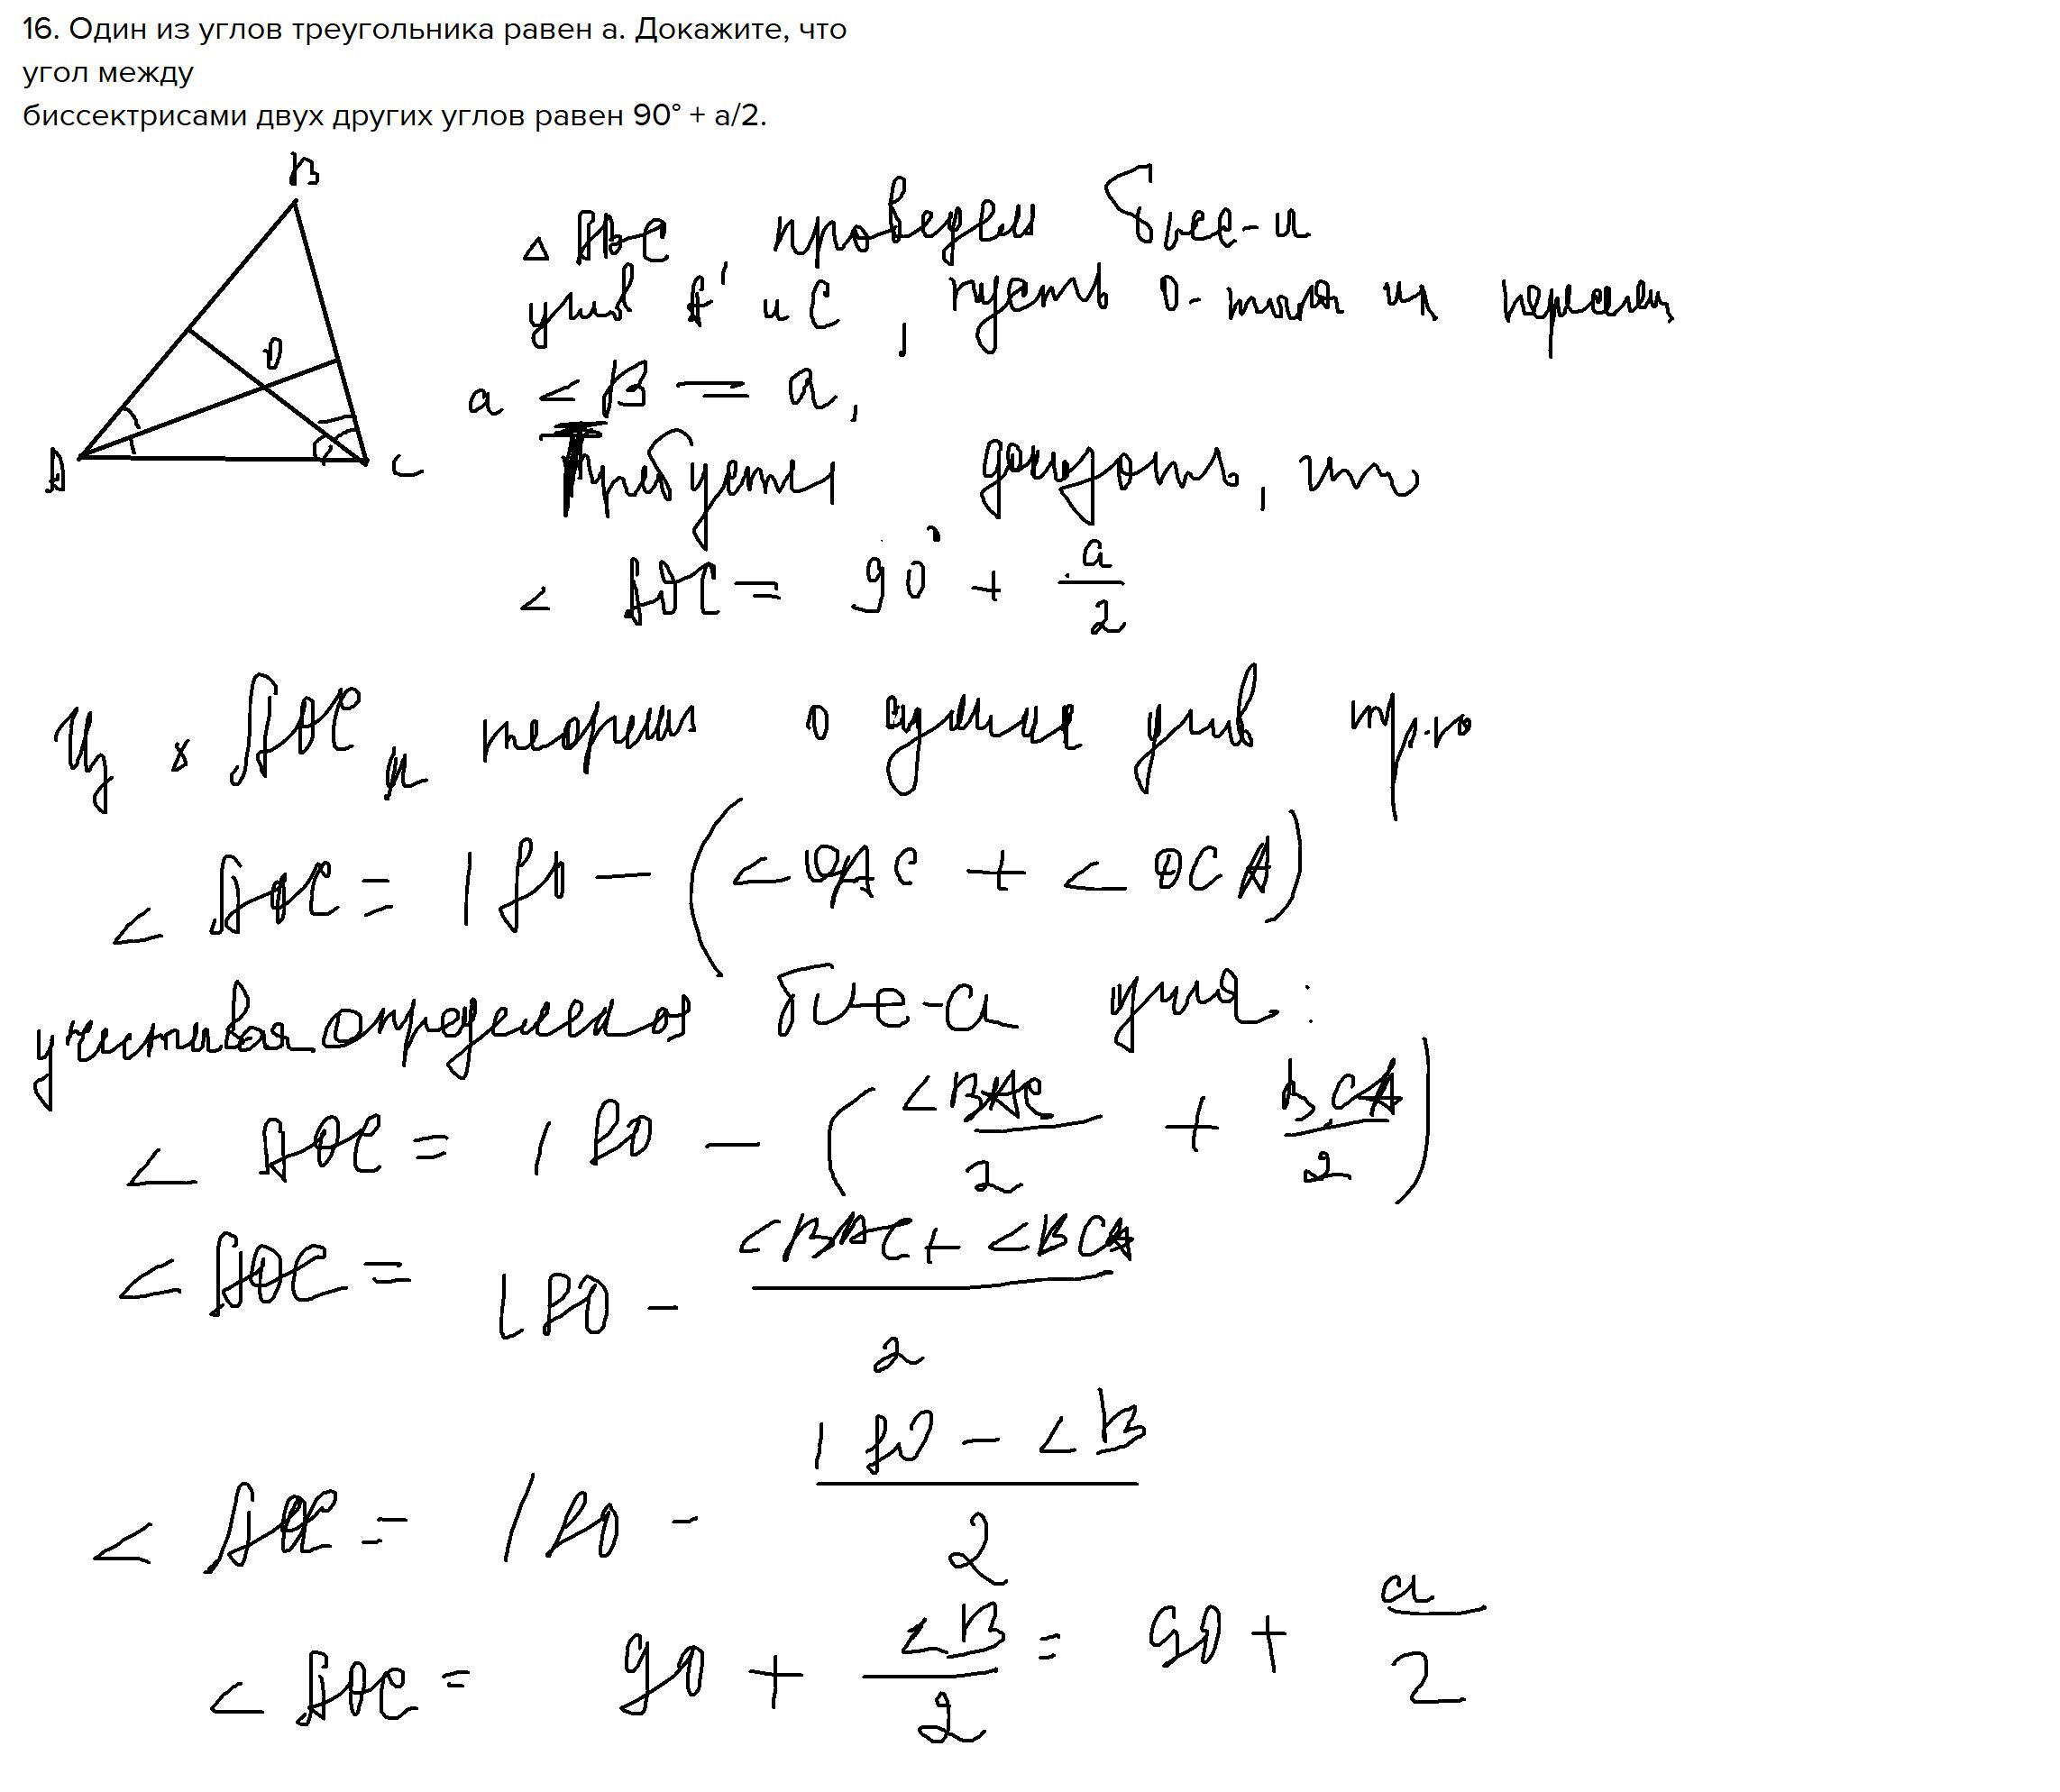 16. Один из углов треугольника равен а. Докажите, что
угол между
биссектрисами двух других углов равен 90° + а/2.
B
O
A
C
△ ABC проведем бисс-и
углов A и C, пусть O - точка их пересечен
а ∠B = a,
Требуется доказать, что
∠ AOC = 90° + a/2
Из △ AOC и теорема о сумме углов тр-ка
∠ AOC = 180 - (∠OAC + ∠OCA)
учитывая определение бис-сы угла:
∠ AOC = 180 - (∠BAC/2 + BCA/2)
∠ AOC = 180 - (∠BAC + ∠BCA)/2
∠ AOC = 180 - (180 - ∠B)/2
∠ AOC = 90 + ∠B/2 = 90 + a/2